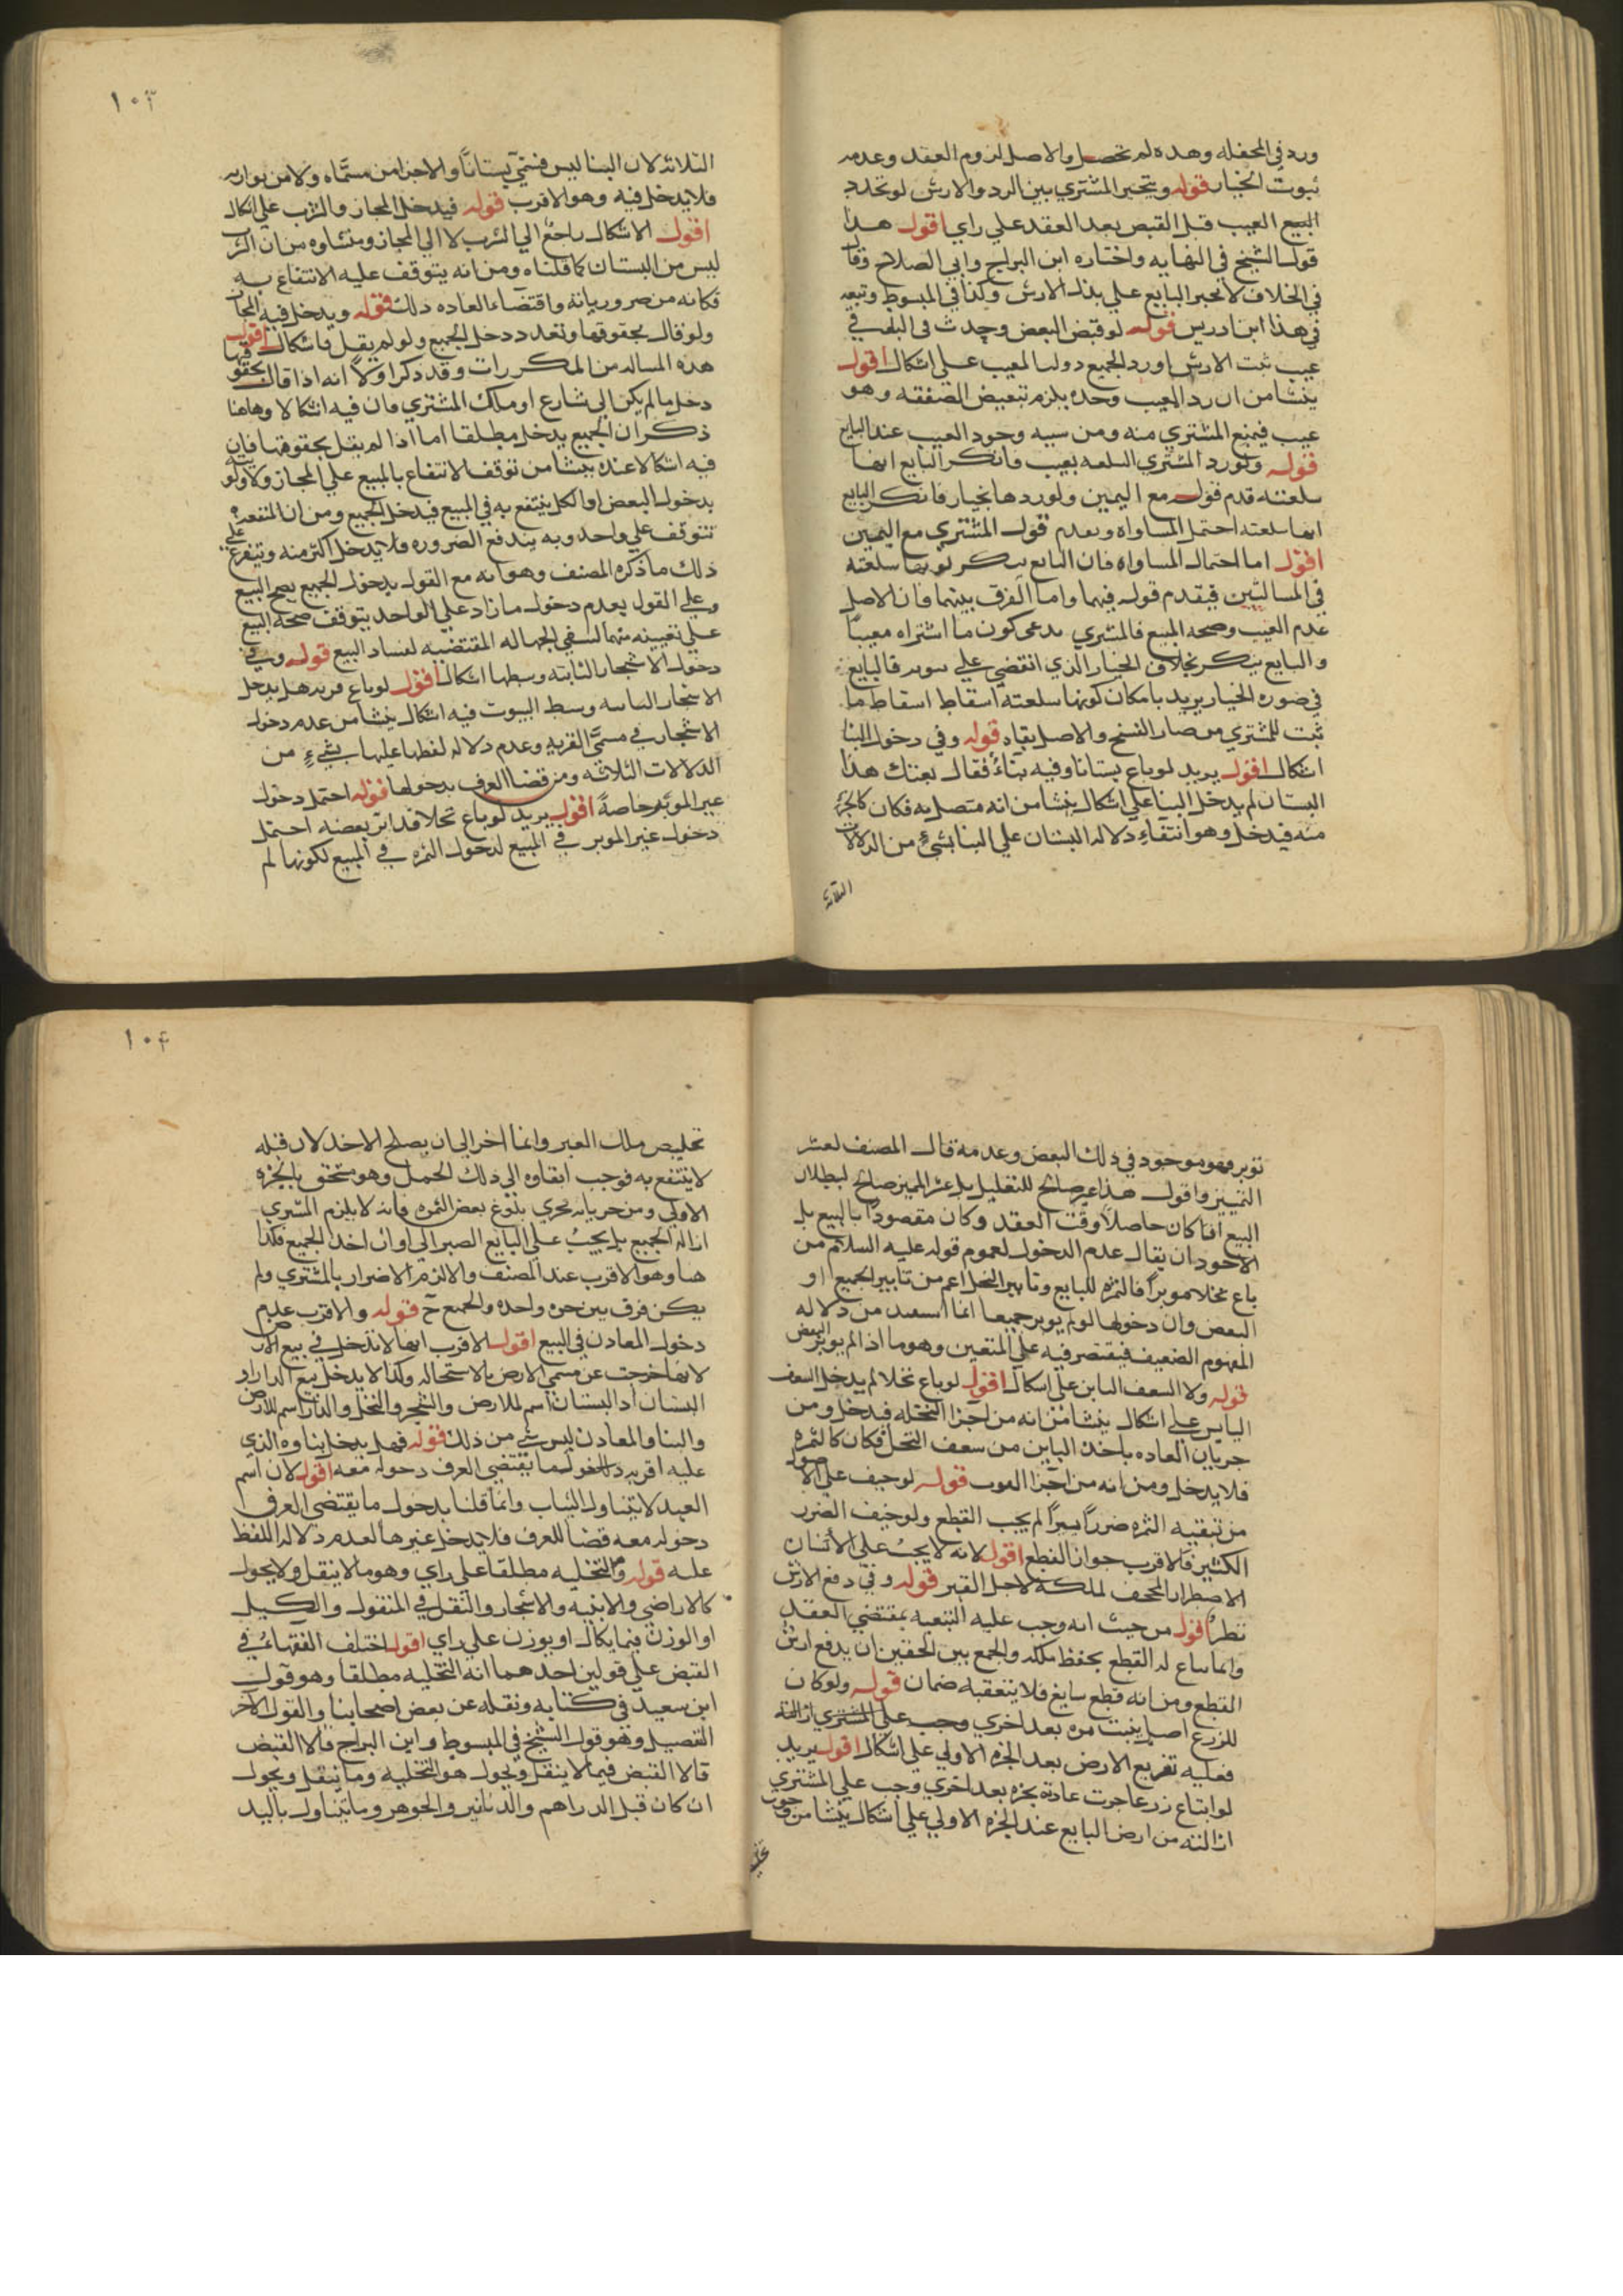 ورد في المحفله وهذه لم تحصل والاصل لزوم العقد وعدم
ثبوت الخيار قوله ويتخير المشتري بين الرد والارش لو تجدد
البيع العيب قبل القبض بعد العقد علي راي اقول هذا
قول الشيخ في النهايه واختاره ابن البراج وابي الصلاح وقال
في الخلاف لا نجبر البايع علي بذل الارش وكذا في المبسوط وتبعه
في هذا ابن ادريس قوله لو قبض البعض وحدث في الباقي
عيب ثبت الارش او رد الجميع دون المعيب علي اشكال اقول
ينشا من ان رد المعيب وحده يلزم تبعيض الصفقه وهو
عيب فيمنع المشتري منه ومن سبيه وجود العيب عند البايع
قوله ولو رد المشتري السلعه بعيب فانكر البايع انها
سلعته قدم قوله مع اليمين ولو ردها بخيار فانكر البايع
انها سلعته احتمل المساواه وبعدم قول المشتري مع اليمين
اقول اما احتمال المساواه فان البايع ينكر كونها سلعته
في المسالتين فيقدم قوله فيهما واما الفرق بينهما فان الاصل
عدم العيب وصحه المبيع فالمشتري يدعي كون ما اشتراه معيبا
والبايع ينكر بخلاف الخيار الذي انقضي علي فالبايع
في صوره الخيار يريد بامكان كونها سلعته اسقاط اسقاط ما
ثبت للمشتري من الفسخ والاصل بقاه قوله وفي دخول البنا
اشكال اقول يريد لو باع بستانا وفيه بناء فقال بعتك هذا
البستان لم يدخل البنا علي اشكال ينشا من انه متصل به فكان كالجزء
منه فيدخل وهو انتفاء دلاله البستان علي البنا بشيء من الدلالات
الثلاثه
١٠٣
الثلاثه لان البنا ليس فسمي بستانا والاجزا من مسماه ولا من لوازمه
فلا يدخل فيه وهو الاقرب قوله فيدخل المجاز والشرب علي اشكال
اقول الاشكال راجع الي الشرب لا الي المجاز ومنشاوه من ان الشرب
ليس من البستان كما قلناه ومن انه يتوقف عليه الانتفاع به
فكانه من ضرورياته واقتضاء العاده ذلك قوله ويدخل فيه المجاز
ولو قال بحقوقها وتعدد دخل الجميع ولو لم يقل فاشكال اقول
هذه المساله من المكررات وقد ذكر اولا انه اذا قال بحقوقها
دخل ما لم يكن الي شارع او ملك المشتري فان فيه اشكالا وهاهنا
ذكر ان الجميع يدخل مطلقا اما اذا لم يقل بحقوقها فان
فيه اشكالا عنده ينشا من توقف الانتفاع بالمبيع علي المجاز ولا اولويه
بدخول البعض او الكل ينتفع به في المبيع فيدخل الجميع ومن ان المنفعه
تتوقف علي واحد وبه يندفع الضروره فلا يدخل اكثر منه ويتفرع علي
ذلك ما ذكره المصنف وهو انه مع القول بدخول الجميع يصح البيع
وعلي القول بعدم دخول ما زاد علي الواحد يتوقف صحة البيع
علي تعيينه منها لتنتفي الجهاله المقتضيه لفساد البيع قوله وفي
دخول الاشجار الثابته وسطها اشكال اقول لو باع قريه هل يدخل
الاشجار الثابته وسط البيوت فيه اشكال ينشا من عدم دخول
الاشجار في مسمي القريه وعدم دلاله لفظها عليها بشيء من
الدلالات الثلاثه ومن قضا العرف بدخولها قوله احتمل دخول
غير الموبر خاصة اقول يريد لو باع نخلا قد ابر بعضه احتمل
دخول غير الموبر في المبيع لدخول الثمره في المبيع لكونها لم
توبر وهو موجود في ذلك البعض وعدمه قال المصنف لعسر
التمييز واقول هذا غير صالح للتعليل بل عسر المميز صالح لبطلان
البيع اذا كان حاصلا وقت العقد وكان مقصودا بالبيع بل
الاجود ان يقال عدم الدخول لعموم قوله عليه السلام من
باع نخلا موبرا فالثمره للبايع وتابير النخل اعم من تابير الجميع او
البعض وان دخولها لو لم يوبر جميعها انما استفيد من دلاله
المفهوم الضعيف فيقتصر فيه علي المتعين وهو ما اذا لم يوبر البعض
قوله ولا السعف اليابس علي اشكال اقول لو باع نخلا لم يدخل السعف
اليابس علي اشكال ينشا من انه من اجزا النخله فيدخل ومن
جريان العاده باخذ اليابس من سعف النخل فكان كالثمره
فلا يدخل ومن انه من اجزا قوله لو خيف علي الاصول
من تبقيه الثمره ضررا يسيرا لم يجب القطع ولو خيف الضرر
الكثير فالاقرب جواز القطع اقول لانه لا يجب علي الانسان
الاضرار المجحف لملكه لاجل الغير قوله وفي دفع الارش
نظر اقول من حيث انه وجب عليه التبقيه بمقتضي العقد
وانما ساغ له القطع بحفظ ملكه والجمع بين الحقين ان يدفع ارش
القطع ومن انه قطع سايغ فلا يتعقبه ضمان قوله ولو كان
للزرع اصل ينبت مره بعد اخري وجب علي المشتري ازالته
فعليه تفريغ الارض بعد الجزه الاولي علي اشكال اقول يريد
لو ابتاع زرعا جرت عادته بجزه بعد اخري وجب علي المشتري
ازالته من ارض البايع عند الجزه الاولي علي اشكال ينشا من وجوب
١٠٤
تخليص ملك الغير وانما اخر الي ان يصلح الاخذ لان قبله
لا ينتفع به فوجب ابقاوه الي ذلك الحمل وهو متحقق بالجزه
الاولي ومن جريانه مجري بلوغ بعض الثمره فانه لا يلزم المشتري
ازاله الجميع بل يجب علي البايع الصبر الي اوان اخذ الجميع فكذا
هنا وهو الاقرب عند المصنف والالزم الاضرار بالمشتري ولم
يكن فرق بين جزه واحده والجميع ح قوله والاقرب عدم
دخول المعادن في البيع اقول الاقرب انها لا تدخل في بيع الارض
لانها خرجت عن مسمي الارض بالاستحاله وكذا لا يدخل بيع الدار او
البستان اذ البستان اسم للارض والشجر والنخل والدار اسم للارض
والبنا والمعادن ليس شي من ذلك قوله فهل يدخل بناوه الذي
عليه اقربه دخول ما يقتضي العرف دخوله معه اقول لان اسم
العبد لا يتناول الثياب وانما قلنا بدخول ما يقتضي العرف
دخوله معه قضا للعرف فلا يدخل غيرها لعدم دلاله اللفظ
عليه قوله والتخليه مطلقا علي راي وهو ما لا ينقل ولا يحول
كالاراضي والابنيه والاشجار والنقل في المنقول والكيل
او الوزن فيما يكال او يوزن علي راي اقول اختلف الفقهاء في
القبض علي قولين احدهما انه التخليه مطلقا وهو قول
ابن سعيد في كتابه ونقله عن بعض اصحابنا والقول الاخر
التفصيل وهو قول الشيخ في المبسوط وابن البراج فالا القبض
قالا القبض فيما لا ينقل ويحول هو التخليه وما ينقل ويحول
ان كان قبل الدراهم والدنانير والجوهر وما يتناول باليد